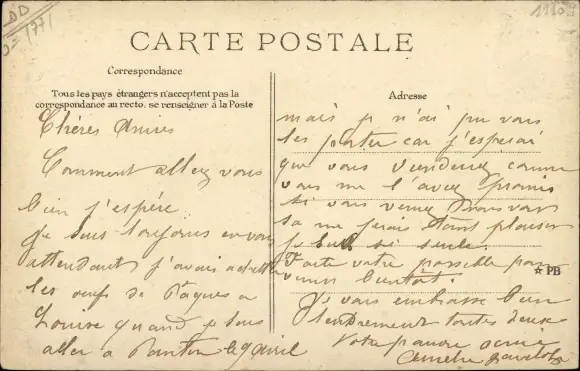 DD
CARTE POSTALE
Correspondance
Tous les pays étrangers n'acceptent pas la
correspondance au recto. se renseigner à la Poste
Chères Amies
Comment allez vous
bien j'espère
je suis toujours en vous
attendant j'avais acheter
les oeufs de Pâques a
Louise quand je suis
aller a Pantin le 9 avril
Adresse
mais je n'ai pu vous
les porter car j'esperai
que vous viendriez comme
vous me l'avez promis
si vous venez me
sa me ferais tant plaisir
je suis si seule.
Faite votre possible pour
venir bientôt.
☆ PB
Je vais embrasse bien
tendrement toutes deux
Votre pauvre amie
Amelie